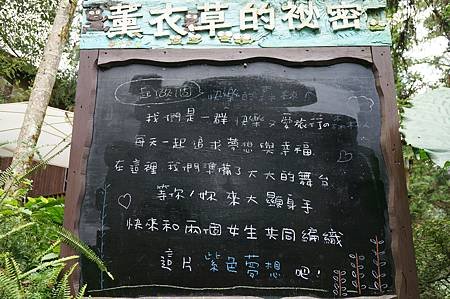 薰衣草的祕密
快樂的森林
我們是一群快樂又愛旅行的
每天一起追求夢想與幸福
在這裡我們準備了大大的舞台
等你/妳來大顯身手
快來和兩個女生共同編織
這片紫色夢想吧!